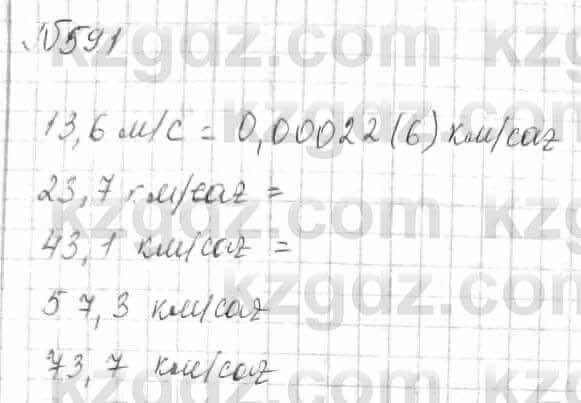 №591
13,6 м/с = 0,00022(6) км/сағ
23,7 км/сағ =
43,1 км/сағ =
57,3 км/сағ
73,7 км/сағ
kzgdz.com